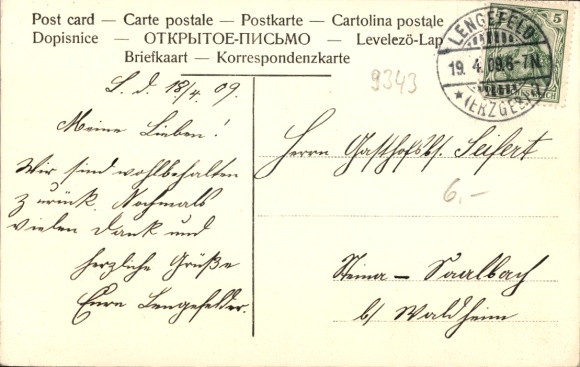 Post card — Carte postale — Postkarte — Cartolina postale
Dopisnice — ОТКРЫТОЕ-ПИСЬМО — Levelező-Lap
Briefkaart — Korrespondenzkarte
LENGEFELD
19. 4. 09. 6-7N.
* (ERZGEB.)
5
9343
L. d. 18/4. 09.
Meine Lieben!
Wir sind wohlbehalten
zurück. Nochmals
vielen Dank und
herzliche Grüße
Eure Lengefelder.
Herrn Gasthofsbs. Seifert
6.–
Steina – Saalbach
b/ Waldheim